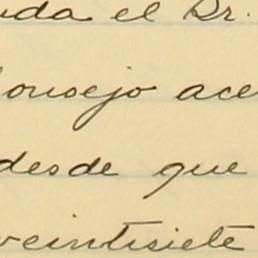 da el Dr.
Consejo ace
desde que
veintisiete